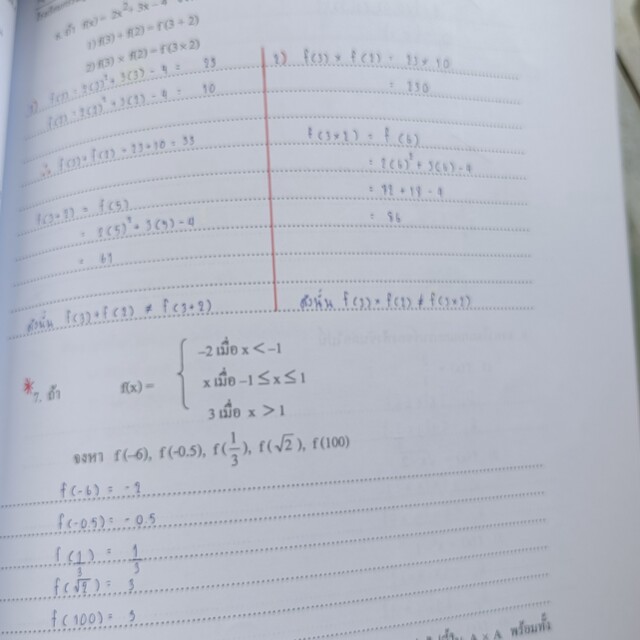 6. ถ้า f(x) = 2x² + 3x - 4
1) f(3) + f(2) = f(3 + 2)
2) f(3) × f(2) = f(3 × 2)
1) f(3) = 2(3)² + 3(3) - 4 = 23
f(2) = 2(2)² + 3(2) - 4 = 10
∴ f(3) + f(2) = 23 + 10 = 33
f(3+2) = f(5)
= 2(5)² + 3(5) - 4
= 61
ดังนั้น f(3) + f(2) ≠ f(3+2)
2) f(3) × f(2) = 23 × 10
= 230
f(3×2) = f(6)
= 2(6)² + 3(6) - 4
= 72 + 18 - 4
= 86
ดังนั้น f(3) × f(2) ≠ f(3×2)
*7. ถ้า f(x) =
-2 เมื่อ x < -1
x เมื่อ -1 ≤ x ≤ 1
3 เมื่อ x > 1
จงหา f(-6), f(-0.5), f(1/3), f(√2), f(100)
f(-6) = -2
f(-0.5) = -0.5
f(1/3) = 1/3
f(√2) = 3
f(100) = 3